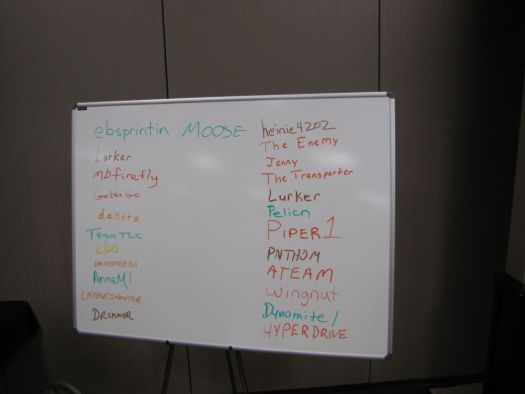 @bsprintin MOOSE
Lurker
mbfirefly
GottaGo
dakota
TeamTLC
LDB
AnneM1
DREAMER
heinie4202
The Enemy
Jenny
The Transporter
Lurker
Pelicn
PIPER1
PNTHJM
ATEAM
wingnut
Dynomite/
HYPERDRIVE